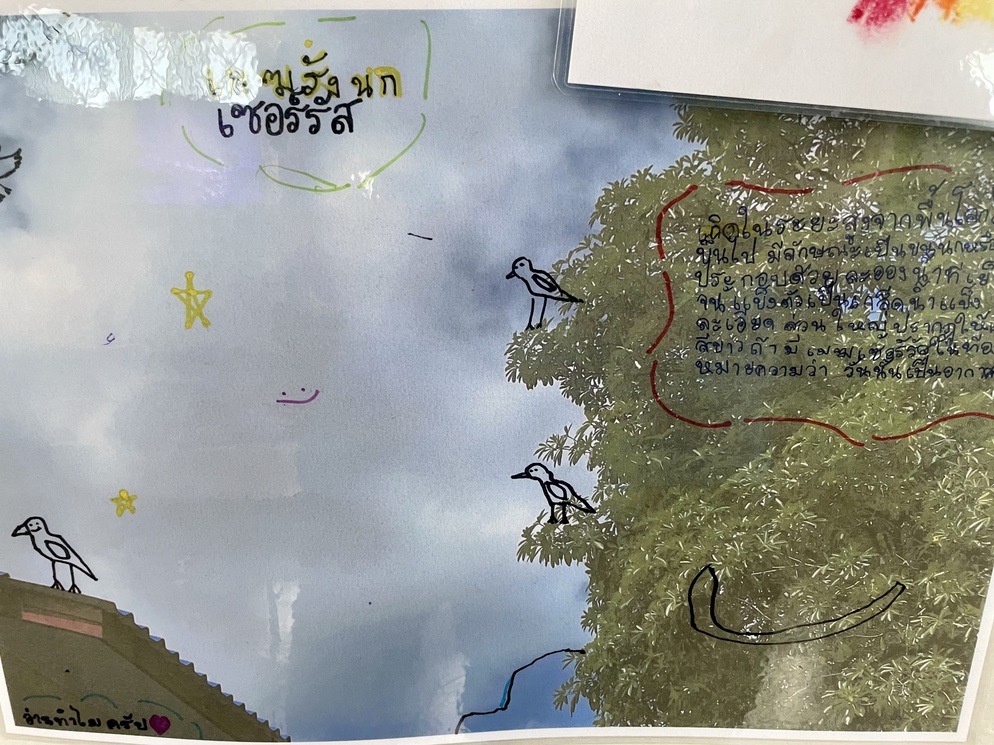 เมฆรังนก
เซอร์รัส
เกิดในระยะสูงจากพื้นโลก
ขึ้นไป มีลักษณะเป็นขนนกหรือ
ประกอบด้วยละอองน้ำที่เย็
จนแข็งตัวเป็นเกล็ดน้ำแข็ง
ละเอียด ส่วนใหญ่ปรากฏให้
สีขาวถ้ามีเมฆเซอร์รัสในท้อ
หมายความว่า วันนั้นเป็นอากาศ
อ่านทำไมครับ